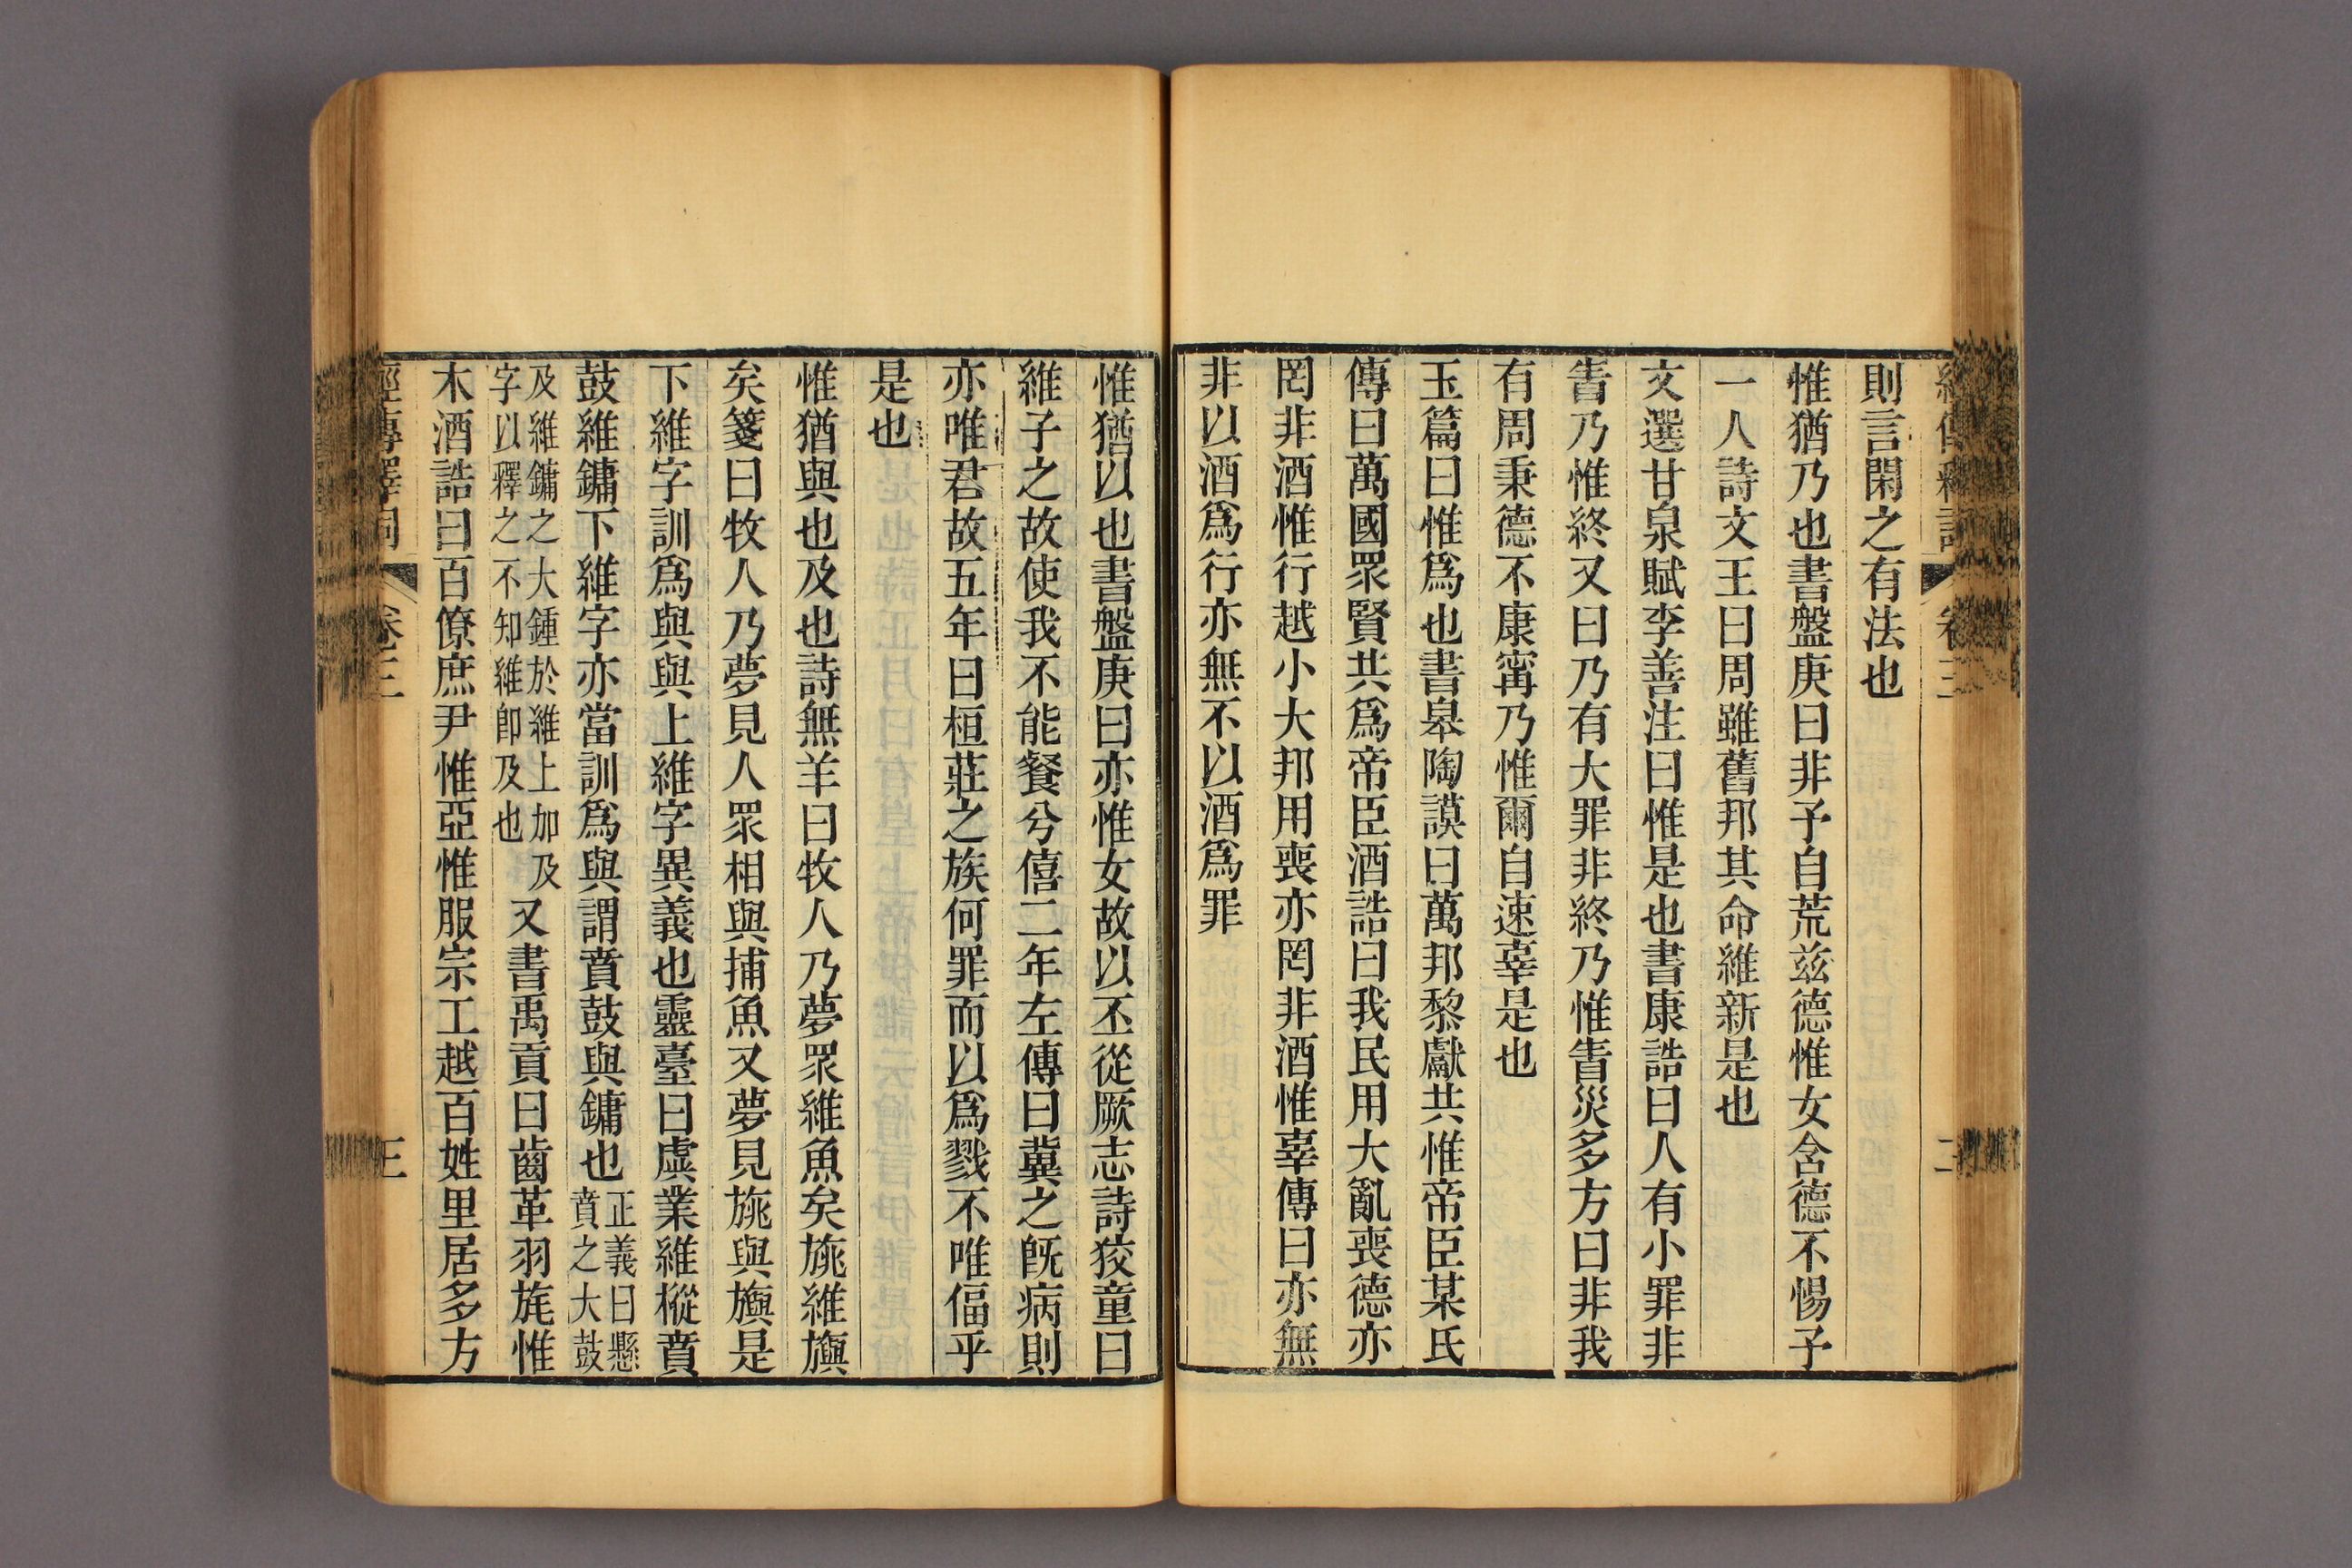 則言閑之有法也
惟猶乃也書盤庚曰非予自荒茲德惟女含德不惕予
一人詩文王曰周雖舊邦其命維新是也
文選甘泉賦李善注曰惟是也書康誥曰人有小罪非
眚乃惟終又曰乃有大罪非終乃惟眚災多方曰非我
有周秉德不康甯乃惟爾自速辜是也
玉篇曰惟爲也書皋陶謨曰萬邦黎獻共惟帝臣某氏
傳曰萬國眾賢共爲帝臣酒誥曰我民用大亂喪德亦
罔非酒惟行越小大邦用喪亦罔非酒惟辜傳曰亦無
非以酒爲行亦無不以酒爲罪
惟猶以也書盤庚曰亦惟女故以丕從厥志詩狡童曰
維子之故使我不能餐兮僖二年左傳曰冀之旣病則
亦唯君故五年曰桓莊之族何罪而以爲戮不唯偪乎
是也
惟猶與也及也詩無羊曰牧人乃夢眾維魚矣旐維旟
矣箋曰牧人乃夢見人眾相與捕魚又夢見旐與旟是
下維字訓爲與與上維字異義也靈臺曰虡業維樅賁
鼓維鏞下維字亦當訓爲與謂賁鼓與鏞也正義曰懸賁之大鼓
及維鏞之大鍾於維上加及字以釋之不知維卽及也又書禹貢曰齒革羽旄惟
木酒誥曰百僚庶尹惟亞惟服宗工越百姓里居多方
經傳釋詞 卷三 三